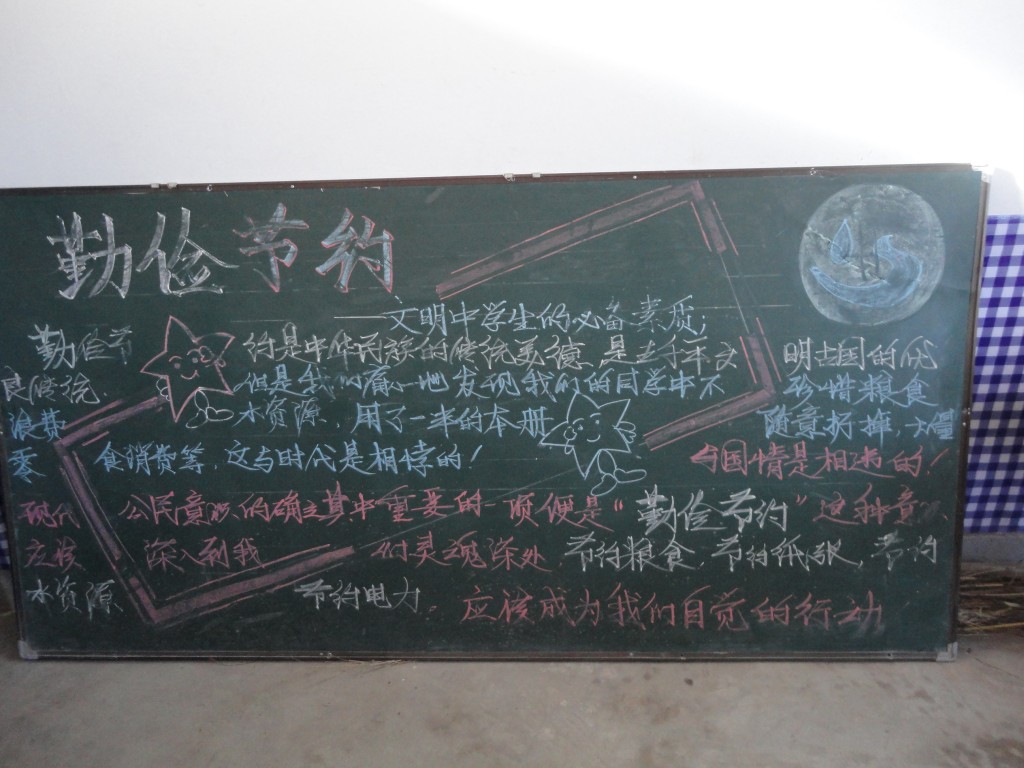 勤俭节约
——文明中学生的必备素质；
勤俭节约是中华民族的传统美德，是五千年文明古国的优
良传统。但是我们痛心地发现我们的同学中不珍惜粮食
浪费水资源，用了一半的本册随意扔掉，大量
零食消费等，这与时代是相悖的！与国情是相违的！
现代公民意识的确立其中重要的一项便是“勤俭节约”这种意识
应该深入到我们灵魂深处 节约粮食、节约纸张、节约
水资源 节约电力 应该成为我们自觉的行动